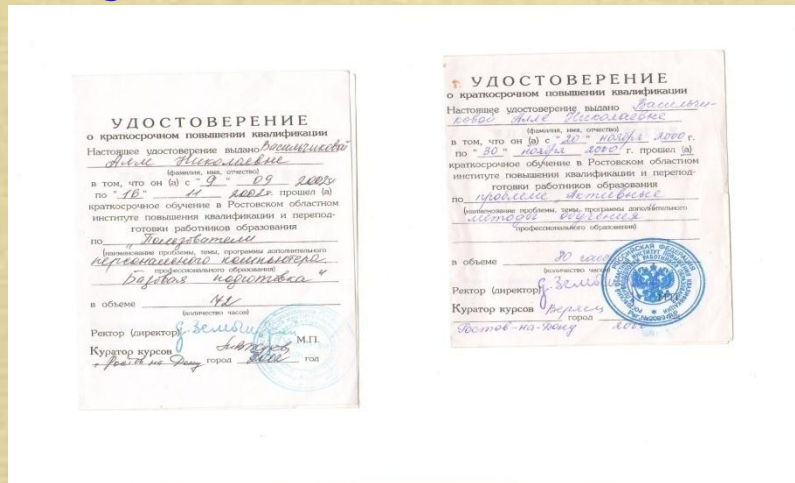 УДОСТОВЕРЕНИЕ
о краткосрочном повышении квалификации
Настоящее удостоверение выдано Васильчиковой
Алле Николаевне
(фамилия, имя, отчество)
в том, что он (а) с " 9 " 09 2002г
по " 16 " 11 2002г. прошел (а)
краткосрочное обучение в Ростовском областном
институте повышения квалификации и перепод-
готовки работников образования
по "Пользователи
(наименование проблемы, темы, программы дополнительного
персонального компьютера.
профессионального образования)
Базовая подготовка"
в объеме 72
(количество часов)
Ректор (директор)
М.П.
Куратор курсов
г. Ростов на Дону город 2002 год
УДОСТОВЕРЕНИЕ
о краткосрочном повышении квалификации
Настоящее удостоверение выдано Васильчи-
ковой Алле Николаевне
(фамилия, имя, отчество)
в том, что он (а) с " 20 " ноября 2000 г.
по " 30 " ноября 2000 г. прошел (а)
краткосрочное обучение в Ростовском областном
институте повышения квалификации и перепод-
готовки работников образования
по проблеме "Активные
(наименование проблемы, темы, программы дополнительного
методы обучения"
профессионального образования)
в объеме 80 часов
(количество часов)
Ректор (директор)
Куратор курсов
город
Ростов-на-Дону 2000
РОССИЙСКАЯ ФЕДЕРАЦИЯ